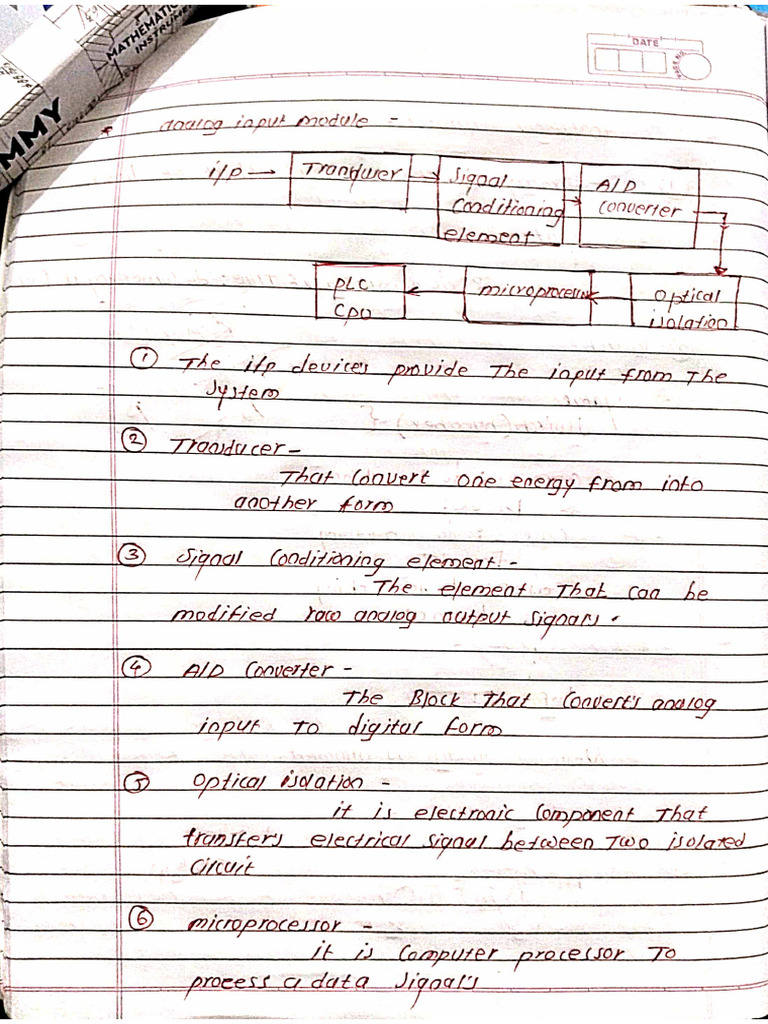 MATHEMATICAL
INSTRUMEN
MMY
DATE
PAGE NO.
Analog input module -
i/p → Tranducer Signal Conditioning element A/D Converter
PLC CPU microprocessor Optical isolation
① The i/p devices provide The input from The
System
② Tranducer -
That Convert one energy from into
another form
③ Signal Conditioning element -
The element That can be
modified raw analog output signals.
④ A/D Converter -
The Block That Convert's analog
input To digital form
⑤ Optical isolation -
it is electronic Component That
transfers electrical signal between Two isolated
Circuit
⑥ microprocessor -
it is Computer processor To
process a data signal's